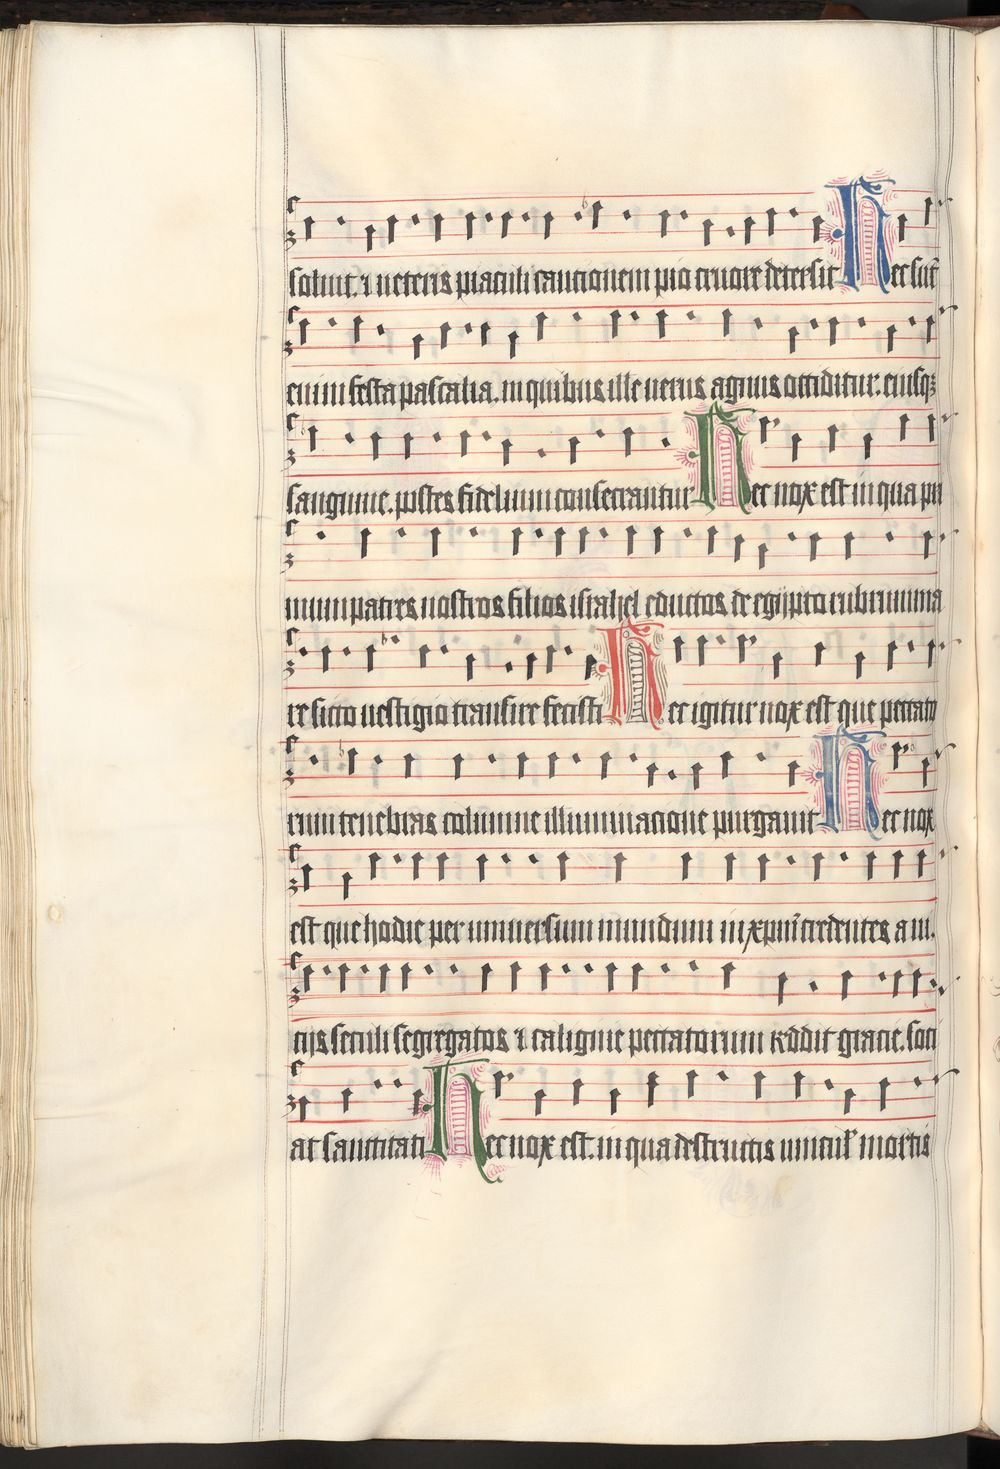 soluit. ⁊ ueteris piaculi caucionem pio cruore detersit Hec sūt
enim festa pascalia. in quibus ille uerus agnus occiditur. eiusqꝫ
sanguine. postes fidelium consecrantur Hec nox est in qua pri
mum patres nostros filios israhel eductos de egypto rubrum ma
re sicco uestigio transire fecisti Hec igitur nox est que peccato
rum tenebras columne illuminacione purgauit Hec nox
est que hodie per uniuersum mundum in xp̄m credentes a ui.
cijs seculi segregatos ⁊ caligine peccatorum reddit gracie. soci
at sanctitati Hec nox est. in qua destructis uincul' mortis